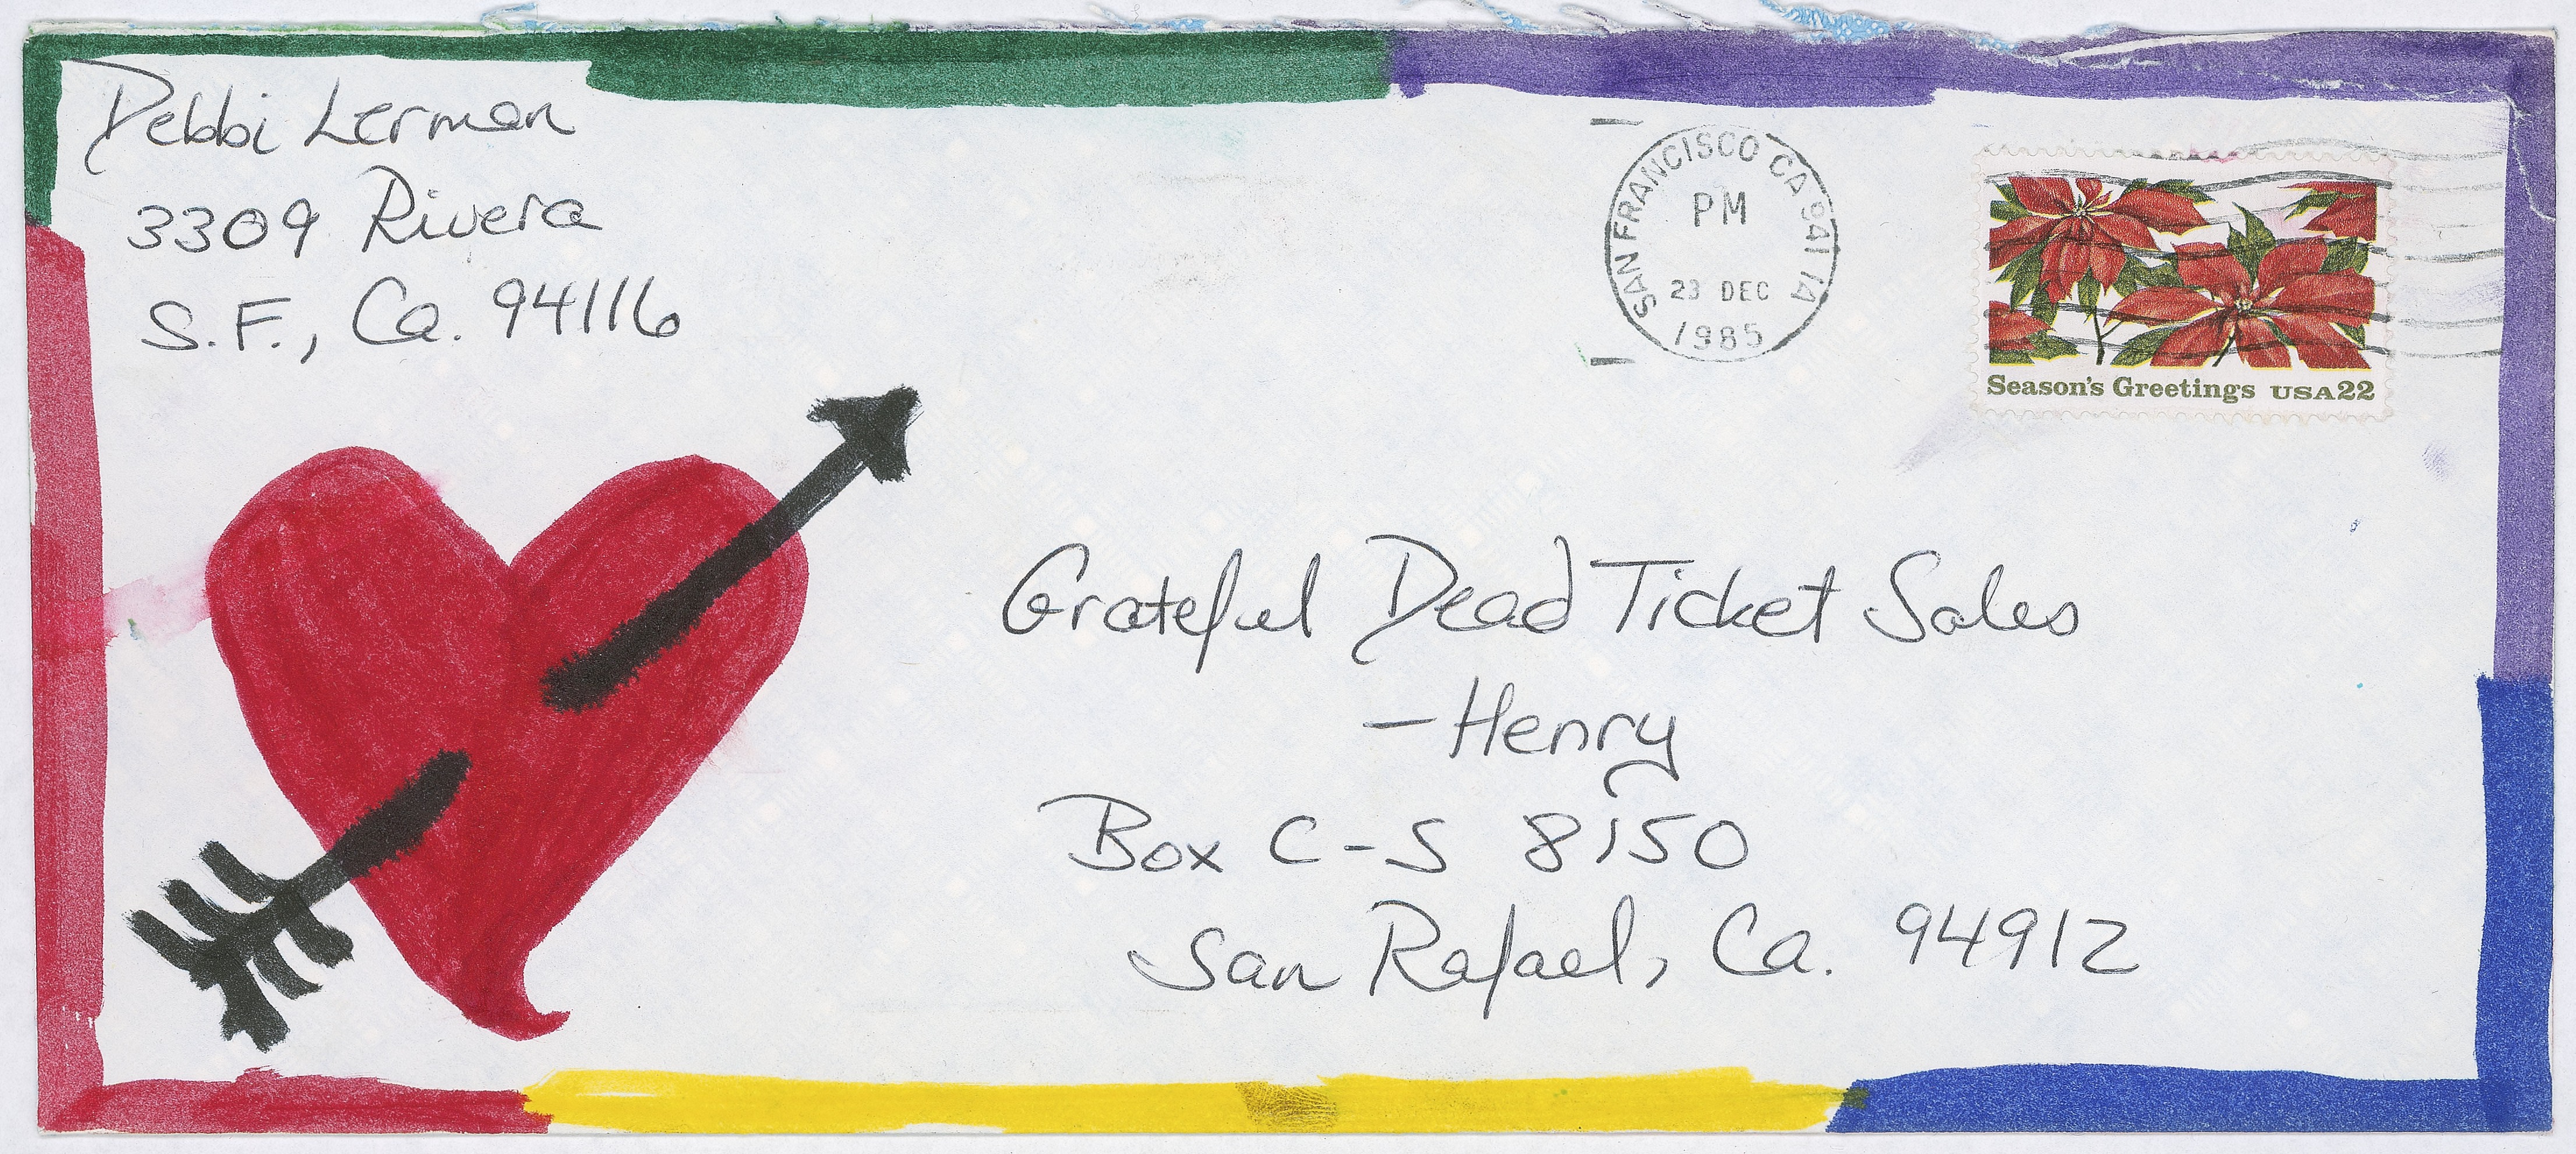 Debbi Lerman
3309 Rivera
S.F., Ca. 94116
SAN FRANCISCO CA 941 14
PM
23 DEC
1985
Season's Greetings USA22
Grateful Dead Ticket Sales
—Henry
Box C-S 8150
San Rafael, Ca. 94912